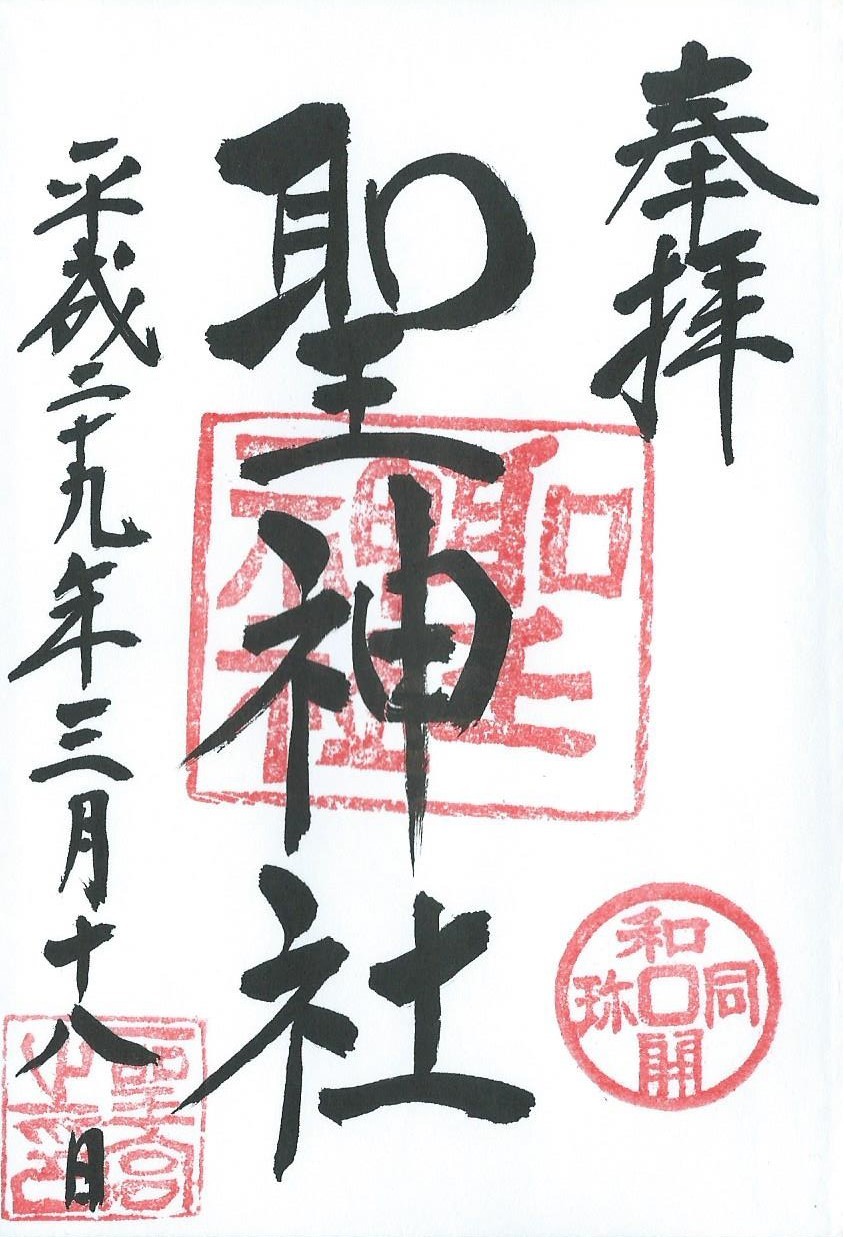 奉拝
聖神社
平成二十九年三月十八日
聖
神社
和同開珎
聖宮
之印